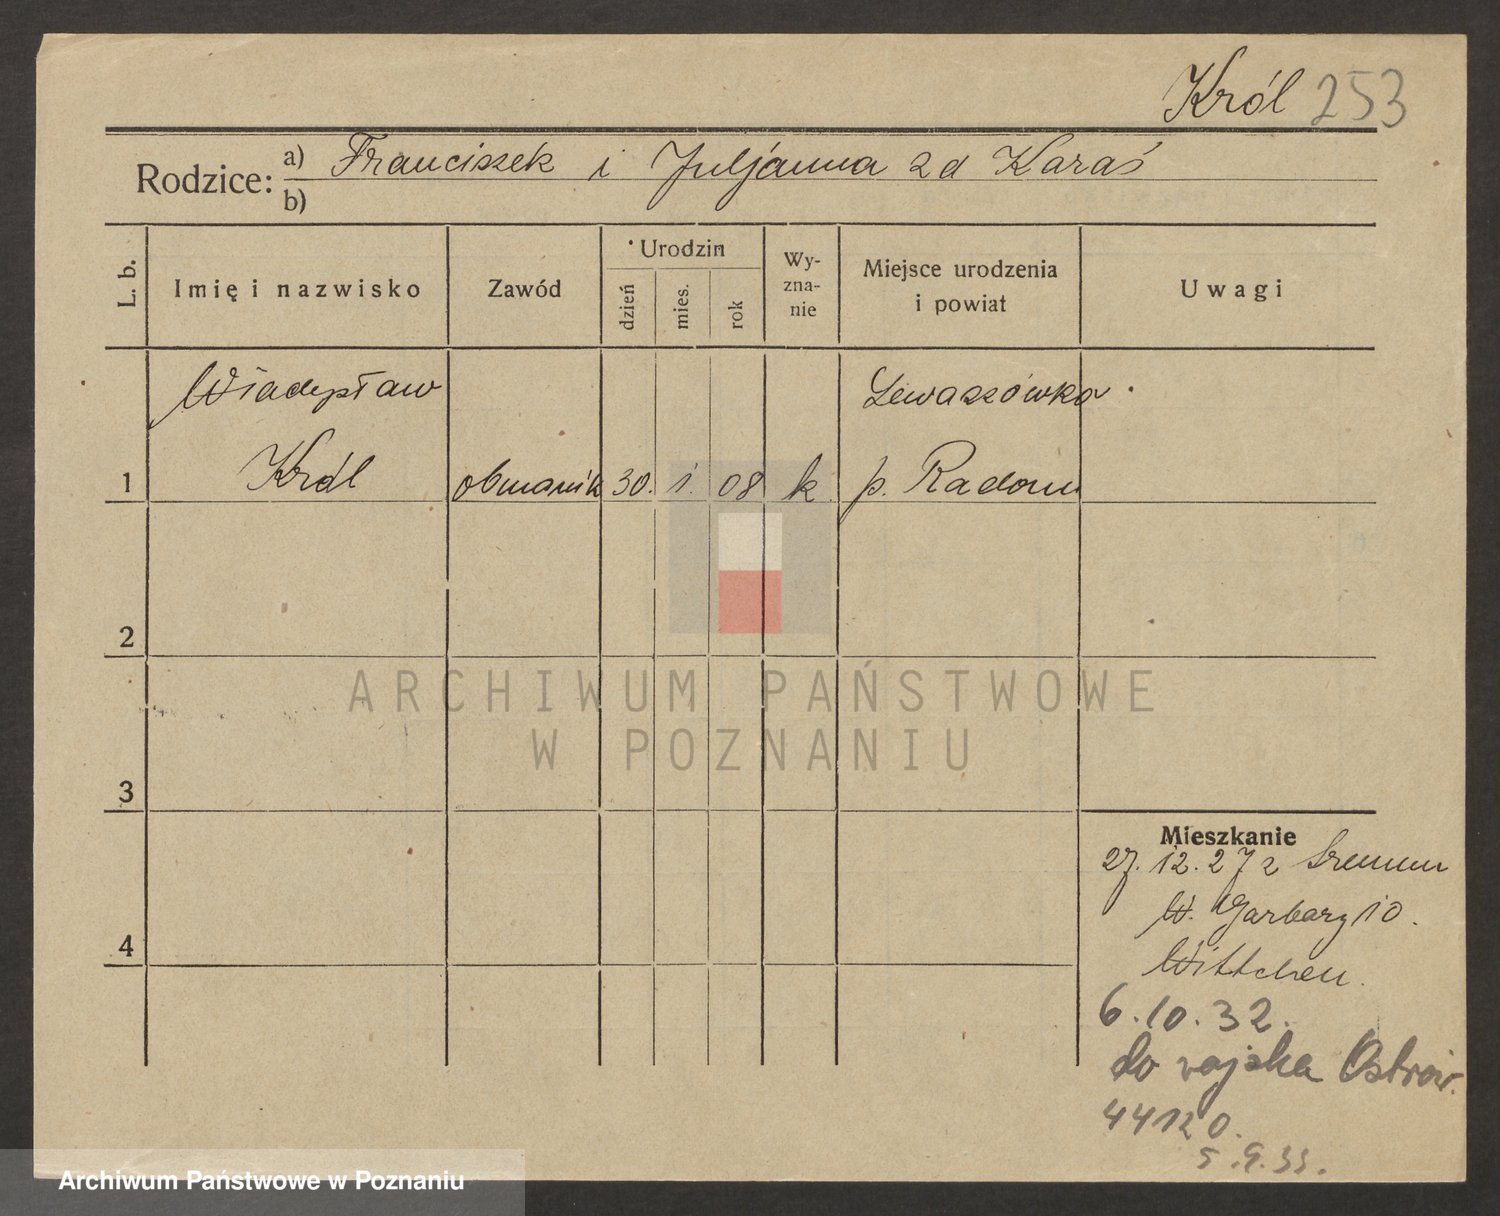 Król 253
Rodzice: a) Franciszek i Juljanna zd Karaś
b)
L. b.
Imię i nazwisko
Zawód
Urodzin
dzień
mies.
rok
Wy-
zna-
nie
Miejsce urodzenia
i powiat
Uwagi
Władysław
Król
30. 1. 08 k
p. Radom
1
2
3
4
ARCHIWUM PAŃSTWOWE
W POZNANIU
Mieszkanie
27. 12. 27 z Śremu
W. Garbary 10.
Wittchen.
6. 10. 32.
do wojska Ostrów.
44120.
5. 9. 33.
Archiwum Państwowe w Poznaniu